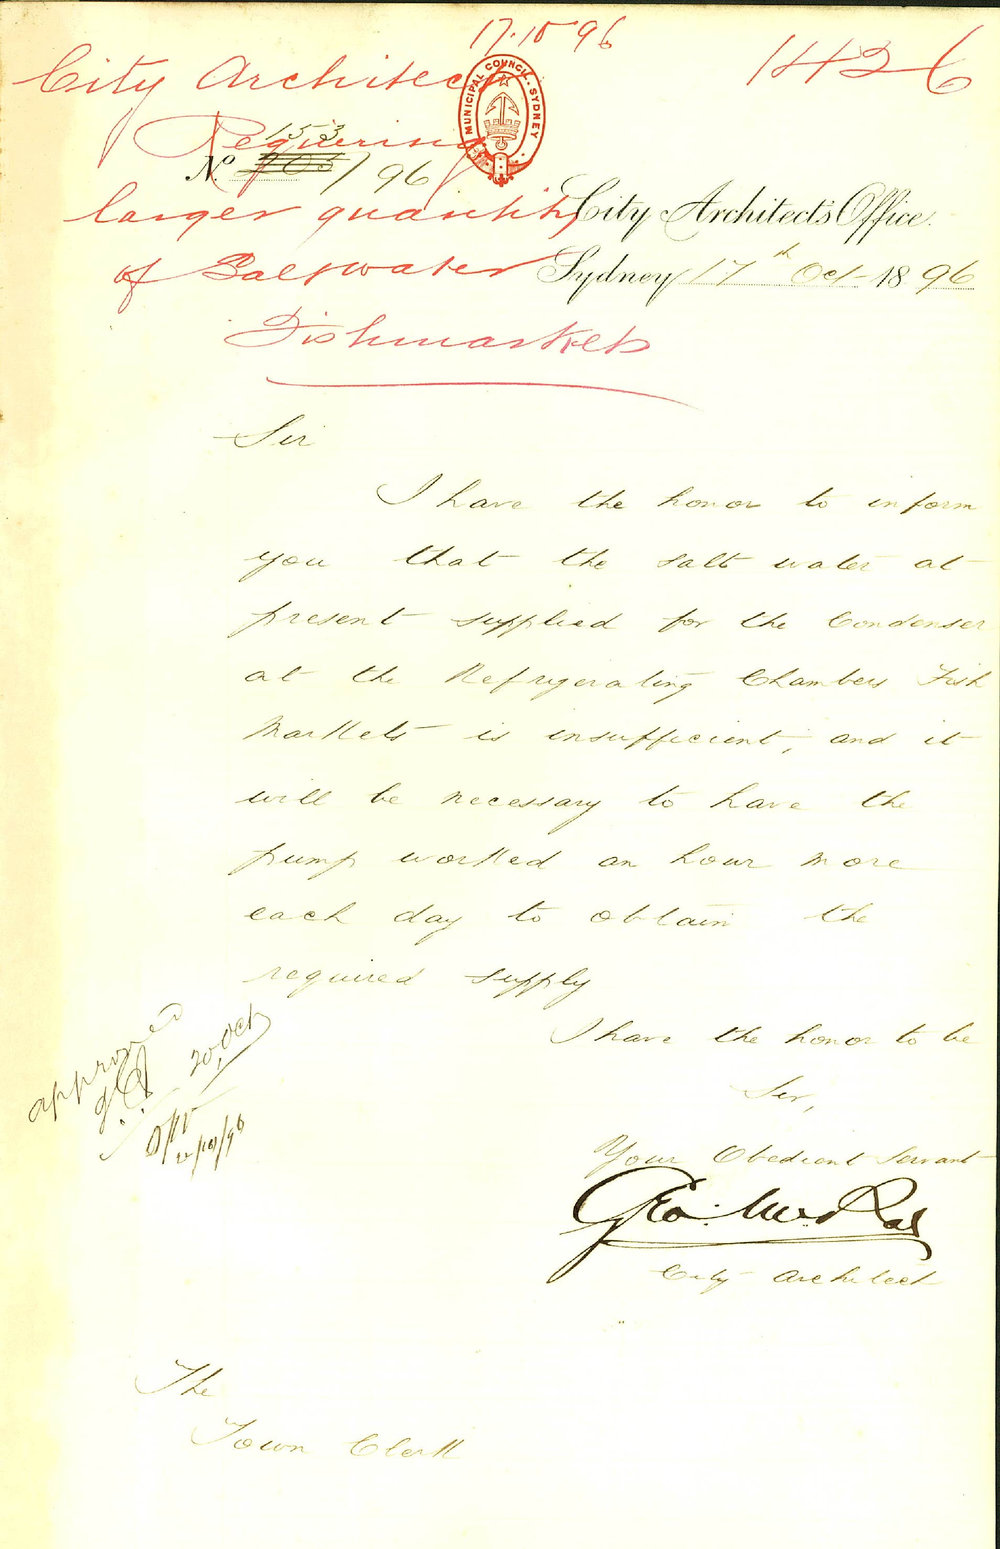 17.10 96
1426
City Architect
MUNICIPAL COUNCIL. SYDNEY
Requiring
153
No. 203/96
larger quantity
City Architect's Office.
of Saltwater
Sydney 17th Oct 1896
Fishmarkets
Sir
I have the honor to inform
you that the salt water at
present supplied for the Condenser
at the Refrigerating Chambers Fish
Markets is insufficient, and it
will be necessary to have the
pump worked an hour more
each day to obtain the
required supply
I have the honor to be
Sir,
Your Obedient Servant
Geo. McRae
City Architect
approved
20 Oct
The
Town Clerk